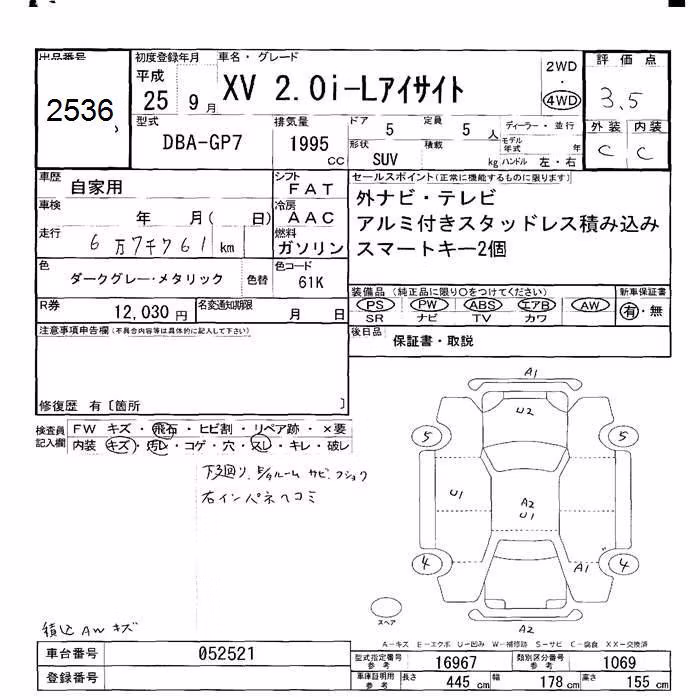 出品番号 初度登録年月 車名・グレード 評価点
2536 平成 25 9月 XV 2.0i-Lアイサイト 2WD・4WD 3.5
型式 排気量 ドア 定員 ディーラー・並行 外装 内装
DBA-GP7 1995 CC 5 5人 モデル年式 年 C C
形状 積載
SUV kg ハンドル 左・右
車歴 自家用 シフト FAT セールスポイント(正常に機能するものに限ります)
車検 年 月( 日) 冷房 AAC 外ナビ・テレビ
走行 6万7千761km 燃料 ガソリン アルミ付きスタッドレス積み込み
スマートキー2個
色 ダークグレー・メタリック 色替 色コード 61K
装備品(純正品に限り○をつけてください) 新車保証書
PS PW ABS エアB AW 有・無
SR ナビ TV カワ
R券 12,030円 名変通知期限 月 日
後日品 保証書・取説
注意事項申告欄(不具合内容等は具体的に記入して下さい)
修復歴 有〔箇所 〕
検査員記入欄 FW キズ・飛石・ヒビ割・リペア跡・×要
内装 キズ・汚レ・コゲ・穴・スレ・キレ・破レ
下廻り、E/gルーム サビ、フショク
右インパネヘコミ
A1
U2
5 5
U1
A2
U1
4 A1 4
スペア
A2
積込AWキズ
A-キズ E-エクボ U-凹み W-補修跡 S-サビ C-腐食 XX-交換済
車台番号 052521
登録番号
型式指定番号参考 16967 類別区分番号参考 1069
車庫証明用参考 長さ 445cm 幅 178cm 高さ 155cm